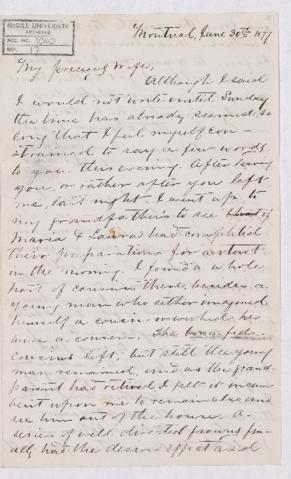 McGILL UNIVERSITY
ARCHIVES
ACC. NO. 1040
REF. 17
Montreal, June 30th 1877
My precious Wife,
Although I said
I would not write until Sunday
the time has already seemed so
long that I feel myself con-
strained to say a few words
to you this evening. After leaving
you or rather after you left
me, last night I went up to
my grandfather's to see if
Maria & Laura had completed
their preparations for a start
in the morning. I found a whole
host of cousins there, besides a
young man who either imagined
himself a cousin or wished he
were a cousin. The bona fide
cousins left, but still the young
man remained, and as the grand-
parent had retired I felt it incum-
bent upon me to remain also and
see him out of the house. A
series of well directed frowns fin-
ally had the desired effect and